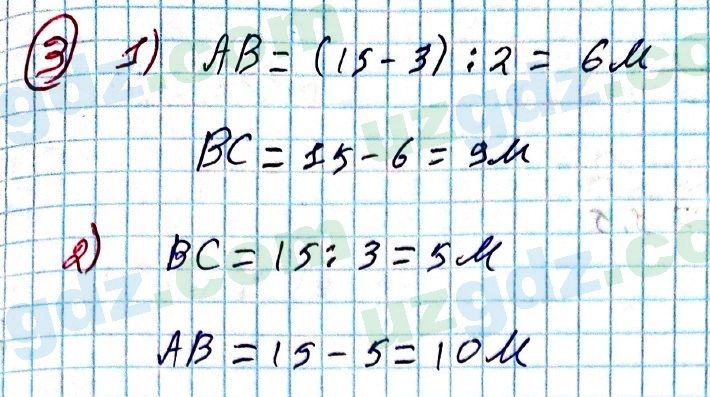 3 1) AB = (15 - 3) : 2 = 6 м
BC = 15 - 6 = 9 м
2) BC = 15 : 3 = 5 м
AB = 15 - 5 = 10 м
uzgdz.com